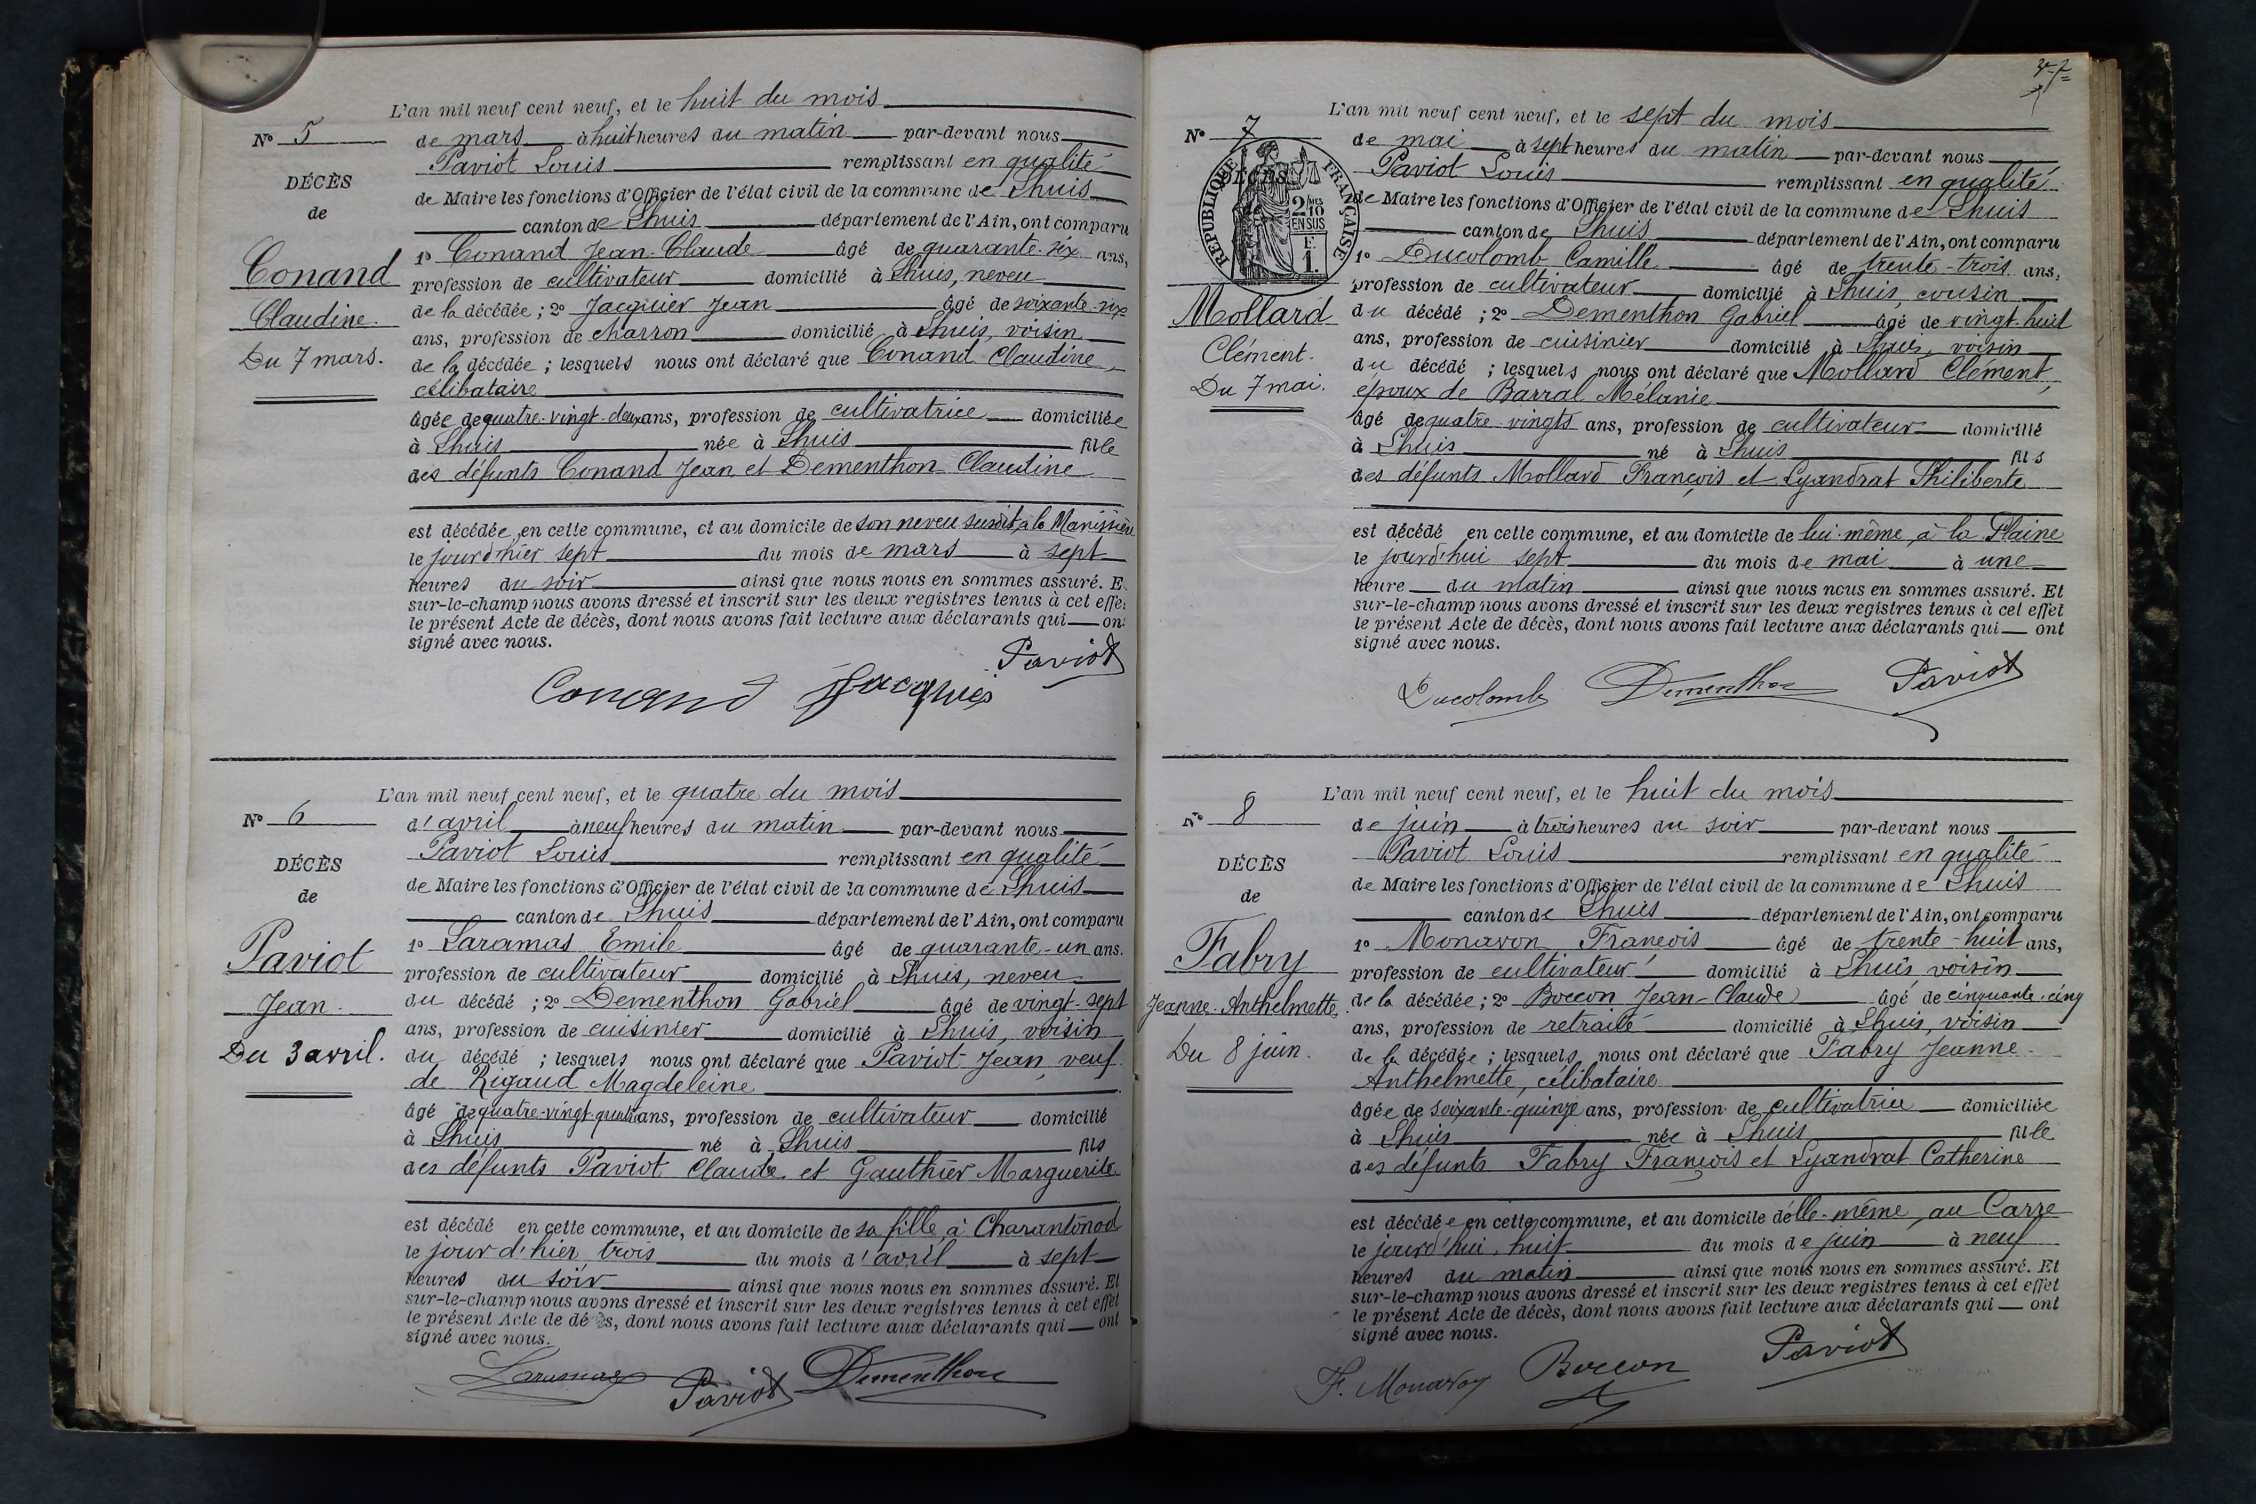 L'an mil neuf cent neuf, et le huit du mois
N° 5
de mars à huit heures du matin par-devant nous
Paviot Louis remplissant en qualité
DÉCÈS
de Maire les fonctions d'Officier de l'état civil de la commune de Lhuis
de
canton de Lhuis département de l'Ain, ont comparu
1° Conand Jean-Claude âgé de quarante-six ans,
Conand
profession de cultivateur domicilié à Lhuis, neveu
de la décédée ; 2° Jacquier Jean âgé de soixante-six
Claudine.
ans, profession de charron domicilié à Lhuis, voisin
Du 7 mars.
de la décédée ; lesquels nous ont déclaré que Conand Claudine,
célibataire
âgée de quatre-vingt-deux ans, profession de cultivatrice domiciliée
à Lhuis née à Lhuis fille
des défunts Conand Jean et Dementhon Claudine
est décédée en cette commune, et au domicile de son neveu susdit, à la Manissieu
le jour d'hier sept du mois de mars à sept
heures du soir ainsi que nous nous en sommes assuré. E
sur-le-champ nous avons dressé et inscrit sur les deux registres tenus à cet effe
le présent Acte de décès, dont nous avons fait lecture aux déclarants qui on
signé avec nous.
Paviot
Conand Jacquier
L'an mil neuf cent neuf, et le quatre du mois
N° 6
d'avril à neuf heures du matin par-devant nous
Paviot Louis remplissant en qualité
DÉCÈS
de Maire les fonctions d'Officier de l'état civil de la commune de Lhuis
de
canton de Lhuis département de l'Ain, ont comparu
1° Laramas Emile âgé de quarante-un ans.
Paviot
profession de cultivateur domicilié à Lhuis, neveu
Jean.
du décédé ; 2° Dementhon Gabriel âgé de vingt-sept
ans, profession de cuisinier domicilié à Lhuis, voisin
Du 3 avril.
du décédé ; lesquels nous ont déclaré que Paviot Jean, veuf
de Rigaud Magdeleine
âgé de quatre-vingt-quatre ans, profession de cultivateur domicilié
à Lhuis né à Lhuis fils
des défunts Paviot Claude et Gauthier Marguerite
est décédé en cette commune, et au domicile de sa fille, à Charantonod
le jour d'hier trois du mois d'avril à sept
heures du soir ainsi que nous nous en sommes assuré. Et
sur-le-champ nous avons dressé et inscrit sur les deux registres tenus à cet effet
le présent Acte de décès, dont nous avons fait lecture aux déclarants qui ont
signé avec nous.
Laramas Paviot Dementhon
L'an mil neuf cent neuf, et le sept du mois
N° 7
de mai à sept heures du matin par-devant nous
Paviot Louis remplissant en qualité
RÉPUBLIQUE FRANÇAISE
2/10 EN SUS
F. 1.
de Maire les fonctions d'Officier de l'état civil de la commune de Lhuis
canton de Lhuis département de l'Ain, ont comparu
1° Ducolomb Camille âgé de trente-trois ans,
profession de cultivateur domicilié à Lhuis, cousin
Mollard
du décédé ; 2° Dementhon Gabriel âgé de vingt-huit
ans, profession de cuisinier domicilié à Lhuis, voisin
Clément.
du décédé ; lesquels nous ont déclaré que Mollard Clément,
Du 7 mai.
époux de Barral Mélanie
âgé de quatre-vingts ans, profession de cultivateur domicilié
à Lhuis né à Lhuis fils
des défunts Mollard François et Lyandrat Philiberte
est décédé en cette commune, et au domicile de lui-même, à la Plaine
le jourd'hui sept du mois de mai à une
heure du matin ainsi que nous nous en sommes assuré. Et
sur-le-champ nous avons dressé et inscrit sur les deux registres tenus à cet effet
le présent Acte de décès, dont nous avons fait lecture aux déclarants qui ont
signé avec nous.
Ducolomb Dementhon Paviot
L'an mil neuf cent neuf, et le huit du mois
N° 8
de juin à trois heures du soir par-devant nous
Paviot Louis remplissant en qualité
DÉCÈS
de Maire les fonctions d'Officier de l'état civil de la commune de Lhuis
de
canton de Lhuis département de l'Ain, ont comparu
1° Monavon François âgé de trente-huit ans,
Fabry
profession de cultivateur domicilié à Lhuis, voisin
Jeanne-Anthelmette.
de la décédée ; 2° Boccon Jean-Claude âgé de cinquante-cinq
ans, profession de retraité domicilié à Lhuis, voisin
Du 8 juin.
de la décédée ; lesquels nous ont déclaré que Fabry Jeanne-
Anthelmette, célibataire
âgée de soixante-quinze ans, profession de cultivatrice domiciliée
à Lhuis née à Lhuis fille
des défunts Fabry François et Lyandrat Catherine
est décédée en cette commune, et au domicile d'elle-même, au Carre
le jourd'hui huit du mois de juin à neuf
heures du matin ainsi que nous nous en sommes assuré. Et
sur-le-champ nous avons dressé et inscrit sur les deux registres tenus à cet effet
le présent Acte de décès, dont nous avons fait lecture aux déclarants qui ont
signé avec nous.
F. Monavon Boccon Paviot